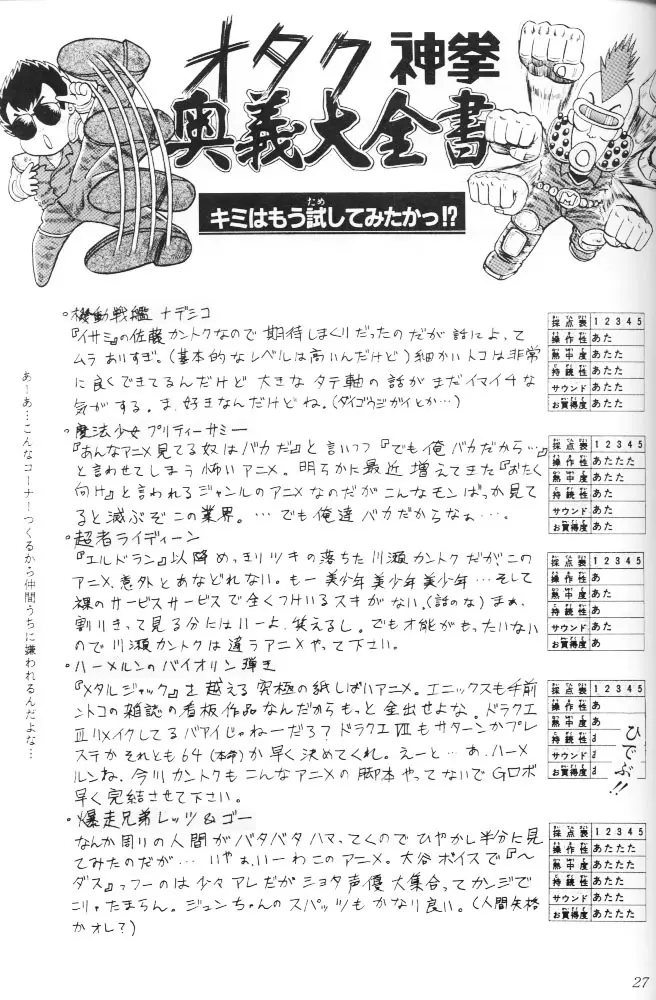 オタク神拳
奥義大全書
キミはもう試してみたかっ!?
ため
・機動戦艦ナデシコ
『イサミ』の佐藤カントクなので期待しまくりだったのだが話によって
ムラありすぎ。(基本的なレベルは高いんだけど)細かいトコは非常
に良くできてるんだけど大きなタテ軸の話がまだイマイチな
気がする。ま、好きなんだけどね。(ダイゴウジガイとか…)
採点表 1 2 3 4 5
操作性 あた
熱中度 あたた
持続性 あたた
サウンド あたた
お買得度 あたた
・魔法少女プリティーサミー
『あんなアニメ見てる奴はバカだ』と言いつつ『でも俺バカだから…』
と言わせてしまう怖いアニメ。明らかに最近増えてきた『おたく
向け』と言われるジャンルのアニメなのだがこんなモンばっか見て
ると滅ぶぞこの業界。…でも俺達バカだからなぁ…。
採点表 1 2 3 4 5
操作性 あたたた
熱中度 あたた
持続性 あた
サウンド あた
お買得度 あたた
・超者ライディーン
『エルドラン』以降めっきりツキの落ちた川瀬カントクだがこの
アニメ、意外とあなどれない。もー美少年美少年美少年…そして
裸のサービスサービスで全くつけいるスキがない。(話のな)まぁ、
割りきって見る分にはいーよ、笑えるし。でも才能がもったいない
ので川瀬カントクは違うアニメやって下さい。
採点表 1 2 3 4 5
操作性 あ
熱中度 あた
持続性 あ
サウンド あた
お買得度 あ
・ハーメルンのバイオリン弾き
『メタルジャック』を越える究極の紙しばいアニメ。エニックスも手前
ントコの雑誌の看板作品なんだからもっと金出せよな。ドラクエ
Ⅲリメイクしてるバアイじゃねーだろ?ドラクエⅦもサターンかプレ
ステかそれとも64(本命)か早く決めてくれ。えーと…あ、ハーメ
ルンね、今川カントクもこんなアニメの脚本やってないでGロボ
早く完結させて下さい。
採点表 1 2 3 4 5
操作性 あ
熱中度 あ
持続性
サウンド
お買得度
ひでぶ!!
・爆走兄弟レッツ&ゴー
なんか周りの人間がバタバタハマってくのでひやかし半分に見
てみたのだが…いやぁ、いーわこのアニメ。大谷ボイスで『〜
ダス』っつーのは少々アレだがショタ声優大集合ってカンジで
こりゃたまらん。ジュンちゃんのスパッツもかなり良い。(人間失格
かオレ?)
採点表 1 2 3 4 5
操作性 あたたた
熱中度 あたたた
持続性 あたた
サウンド あたた
お買得度 あたたた
あーあ…こんなコーナーつくるから仲間うちに嫌われるんだよな…
27